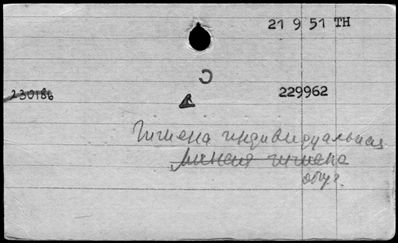 21 9 51 TH
230186
229962
Гигиена индивидуальная
Личная гигиена
общ.